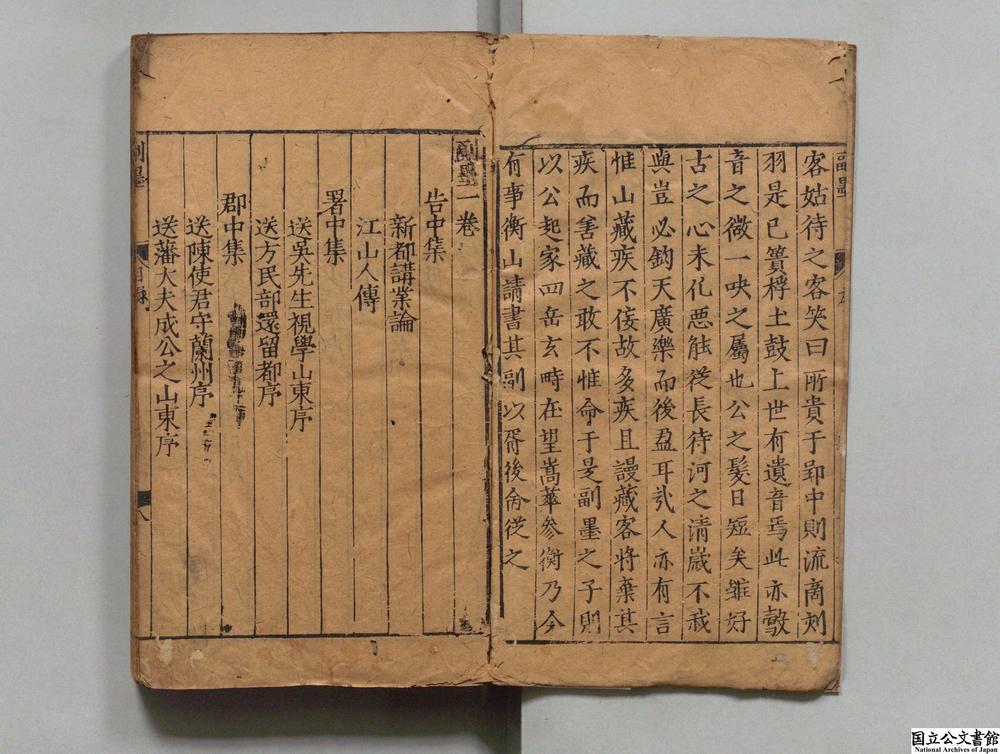 副墨
客姑待之客笑曰所貴于郢中則流商刻
羽是已簣桴土鼓上世有遺音焉此亦鷇
音之微一吷之屬也公之髮日短矣雖好
古之心未化惡能從長待河之清歲不我
與豈必鈞天廣樂而後盈耳哉人亦有言
惟山藏疾不佞故多疾且謾藏客將棄其
疾而害藏之敢不惟命于是副墨之子則
以公起家四岳玄時在望嵩華參衡乃今
有事衡山請書其副以胥後命從之
副墨一卷
告中集
新都講業論
江山人傳
署中集
送吳先生視學山東序
送方民部還留都序
郡中集
送陳使君守蘭州序
送藩大夫成公之山東序
副墨
目錄
八
国立公文書館
National Archives of Japan